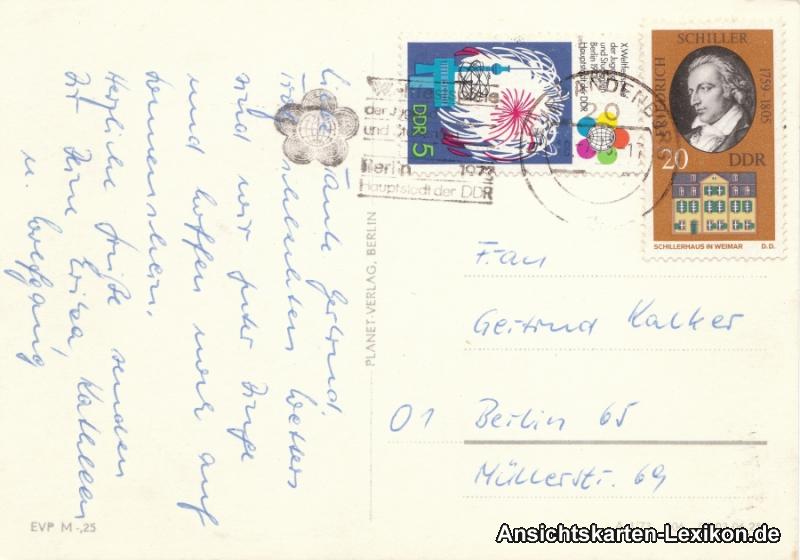 Liebe Tante Gertrud!
Trotz schlechten Wetters
sind wir guter Dinge
und hoffen noch auf
Sonnenschein.
Herzliche Grüße senden
Dir Deine Erika, Kathleen
u. Wolfgang
EVP M -,25
PLANET-VERLAG, BERLIN
Weltfestspiele
der Jugend
und Studenten
Berlin 1973
Hauptstadt der DDR
DDR 5
X. Weltfestspiele
der Jugend
und Studenten
Berlin 1973
Hauptstadt der DDR
FRIEDRICH SCHILLER 1759-1805
20 DDR
SCHILLERHAUS IN WEIMAR D.D.
Frau
Gertrud Kalker
01 Berlin 65
Müllerstr. 69
Ansichtskarten-Lexikon.de